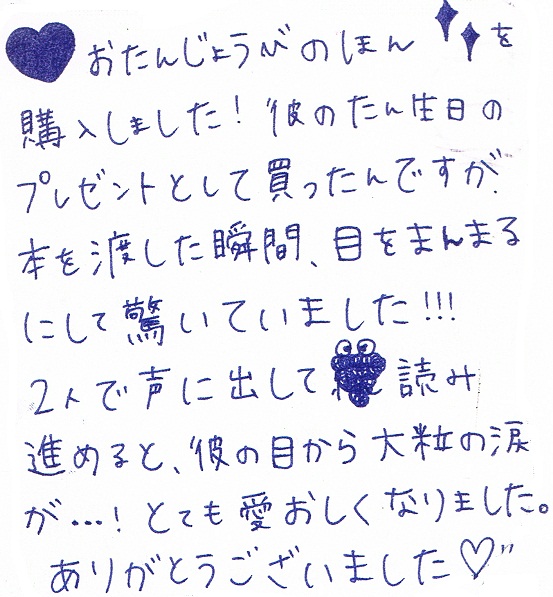 ♥おたんじょうびのほん♦♦を
購入しました！彼のたん生日の
プレゼントとして買ったんですが、
本を渡した瞬間、目をまんまる
にして驚いていました!!!
2人で声に出して 読み
進めると、彼の目から大粒の涙
が…！とても愛おしくなりました。
ありがとうございました♡"